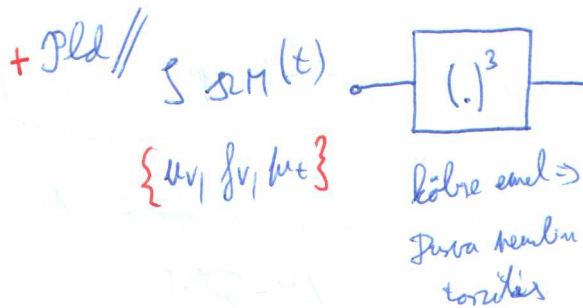 + Pld //
S SZM (t)
(.)³
{uv, fv, μt}
köbre emel ⇒
Durva nemlin
torzítás